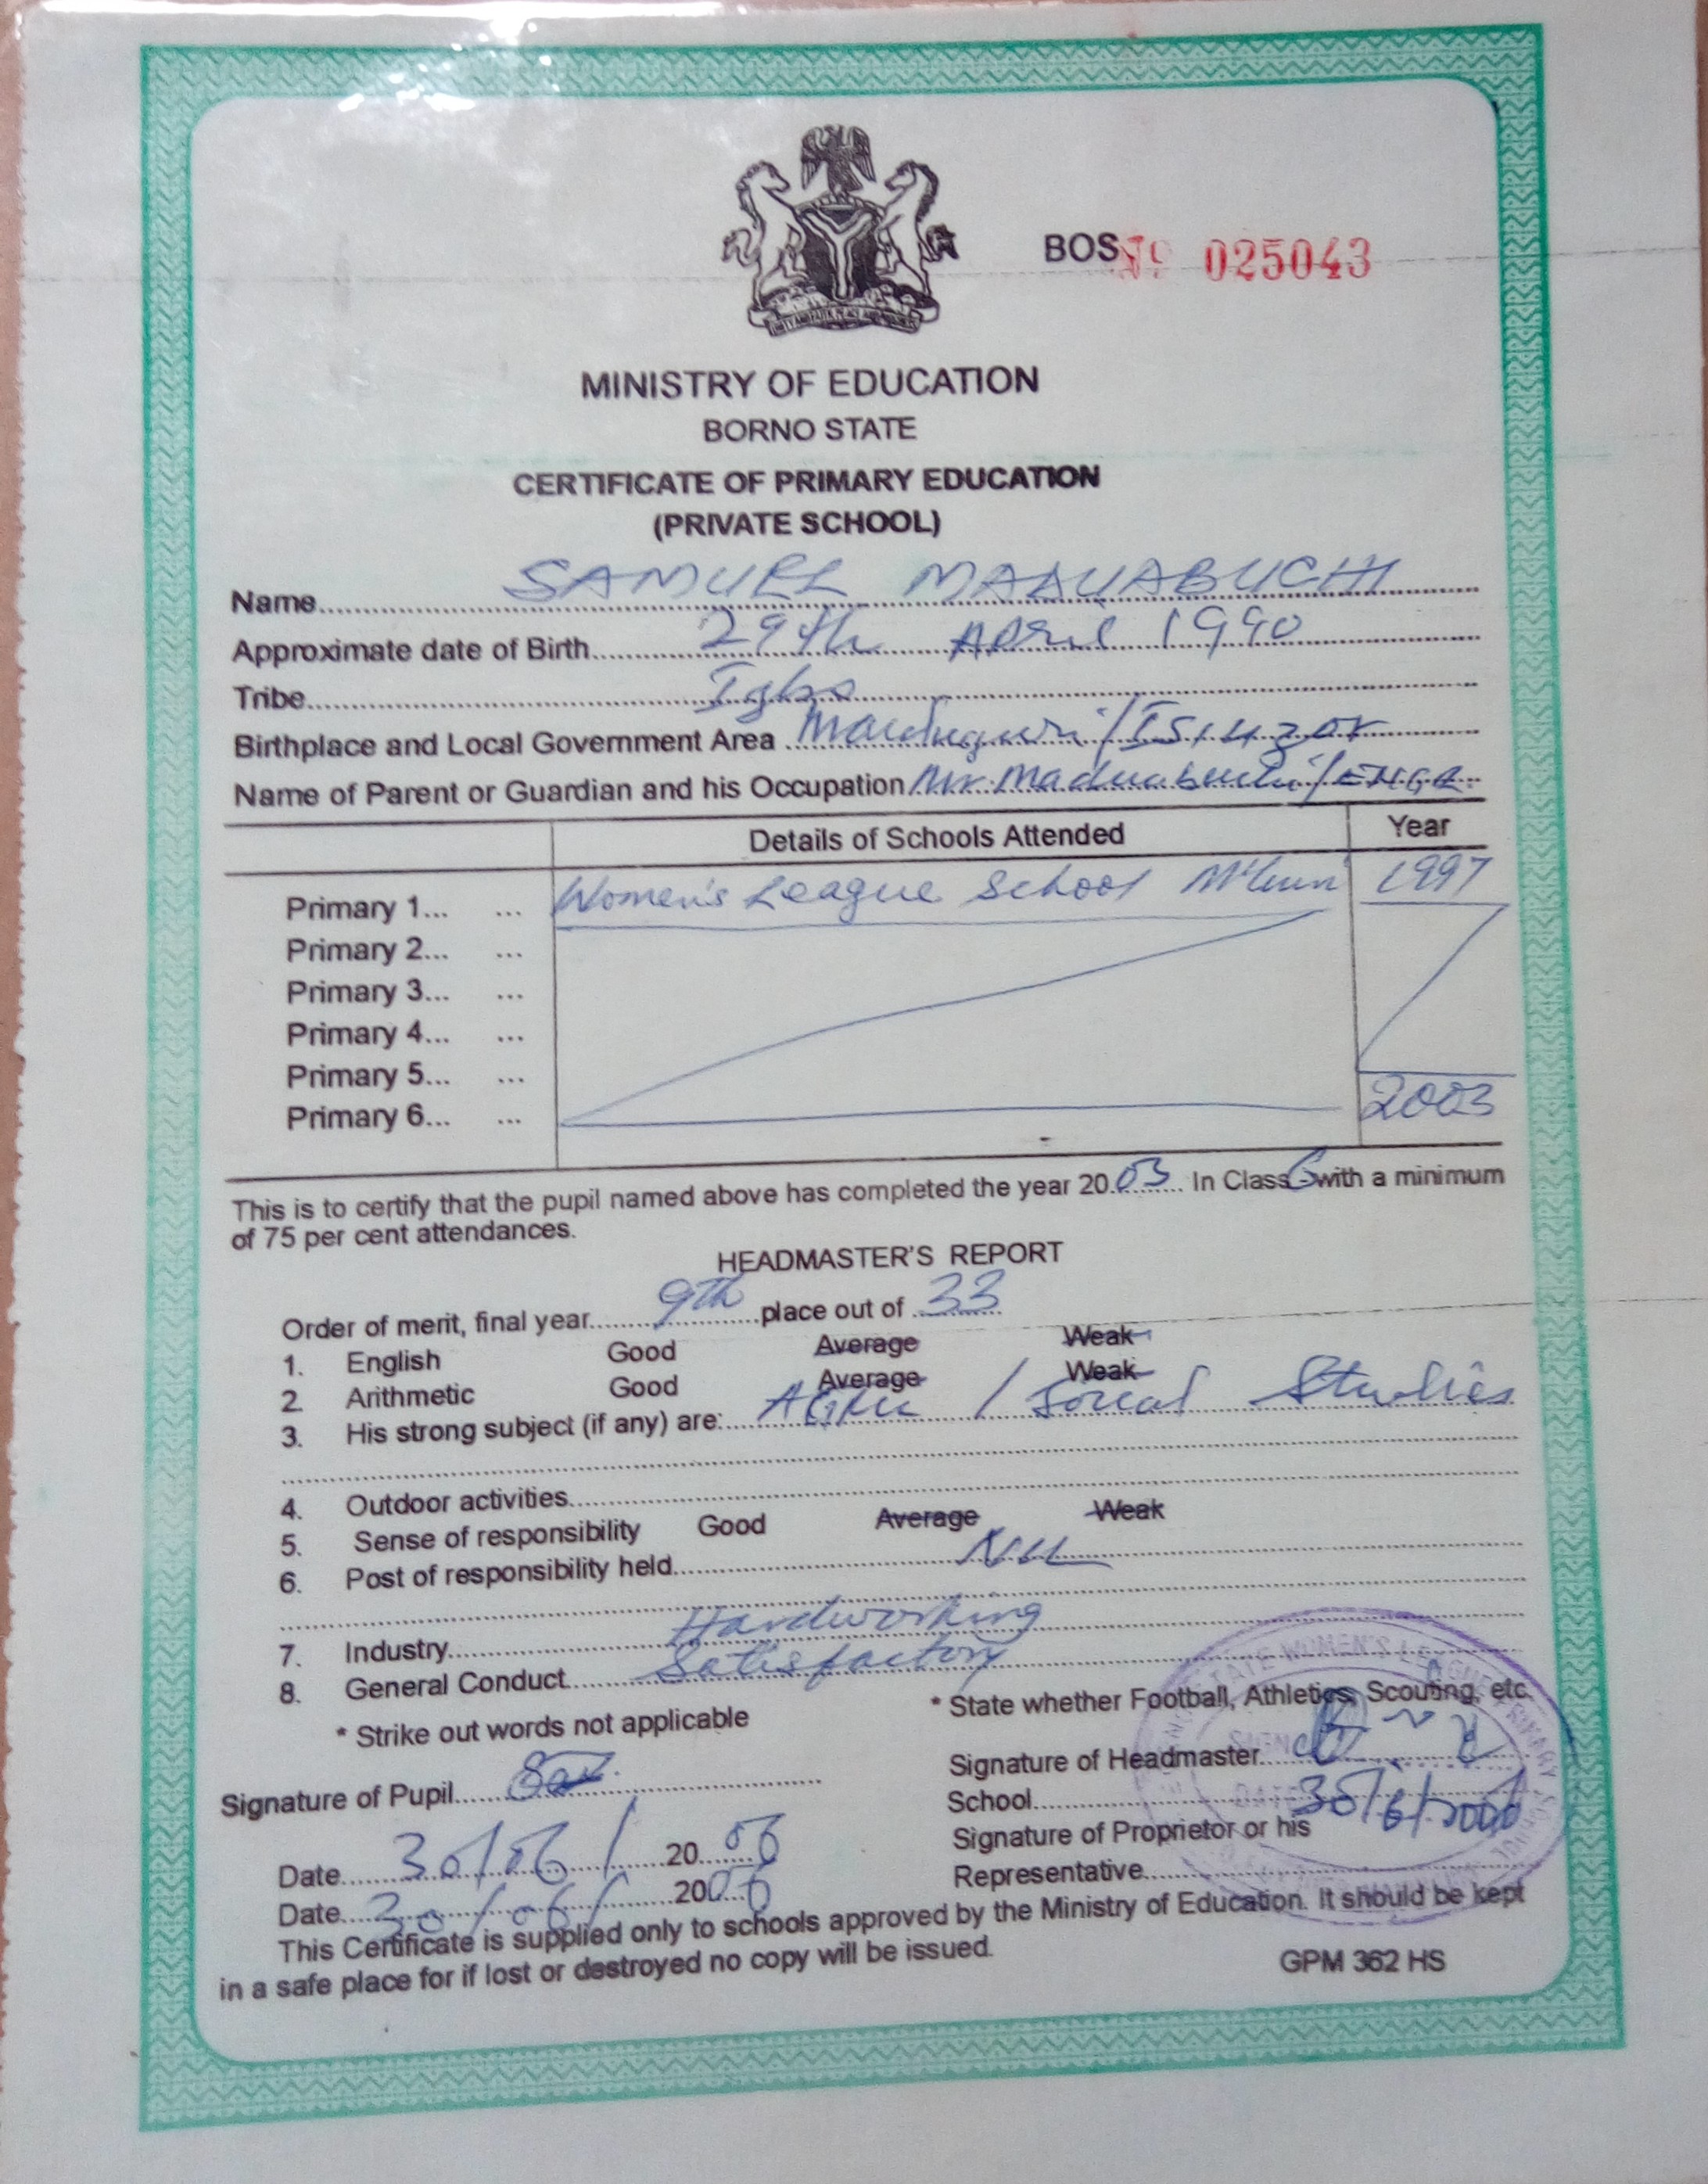 BOS Nº 025043
MINISTRY OF EDUCATION
BORNO STATE
CERTIFICATE OF PRIMARY EDUCATION
(PRIVATE SCHOOL)
Name SAMUEL MADUABUCHI
Approximate date of Birth 29th April 1990
Tribe Igbo
Birthplace and Local Government Area Maiduguri /
Name of Parent or Guardian and his Occupation Mr. Maduabuchi / ENGR.
Details of Schools Attended Year
Primary 1... ... Women's League School 1997
Primary 2... ...
Primary 3... ...
Primary 4... ...
Primary 5... ...
Primary 6... ... 2003
This is to certify that the pupil named above has completed the year 2003 In Class 6 with a minimum
of 75 per cent attendances.
HEADMASTER'S REPORT
Order of merit, final year 9th place out of 33
1. English Good Average Weak
2. Arithmetic Good Average Weak
3. His strong subject (if any) are: Agric / Social Studies
4. Outdoor activities
5. Sense of responsibility Good Average Weak
6. Post of responsibility held Nil
7. Industry Hardworking
8. General Conduct Satisfactory
* State whether Football, Athletics, Scouting, etc.
* Strike out words not applicable
Signature of Headmaster
Signature of Pupil
School 30/6/2006
Signature of Proprietor or his
Representative
Date 30/06/ 2006
Date 30/06/ 2006
This Certificate is supplied only to schools approved by the Ministry of Education. It should be kept
in a safe place for if lost or destroyed no copy will be issued.
GPM 362 HS